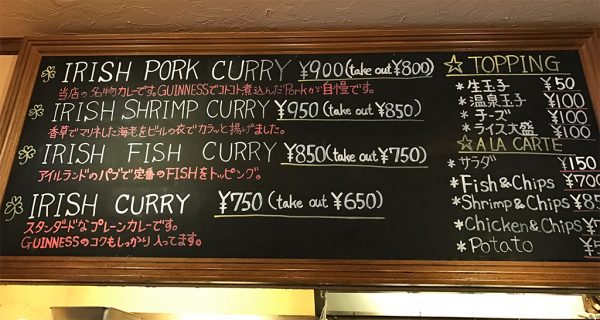 IRISH PORK CURRY ¥900(take out ¥800)
当店の名物カレーです。GUINNESSでコトコト煮込んだPorkが自慢です。
IRISH SHRIMP CURRY ¥950(take out ¥850)
香草でマリネした海老をビールの衣でカラッと揚げました。
IRISH FISH CURRY ¥850(take out ¥750)
アイルランドのパブで定番のFISHをトッピング。
IRISH CURRY ¥750(take out ¥650)
スタンダードなプレーンカレーです。
GUINNESSのコクもしっかり入ってます。
☆TOPPING
*生玉子 ¥50
*温泉玉子 ¥100
*チーズ ¥100
*ライス大盛 ¥100
☆A LA CARTE
*サラダ ¥150
*Fish&Chips ¥700
*Shrimp&Chips ¥85
*Chicken&Chips ¥7
*Potato ¥5